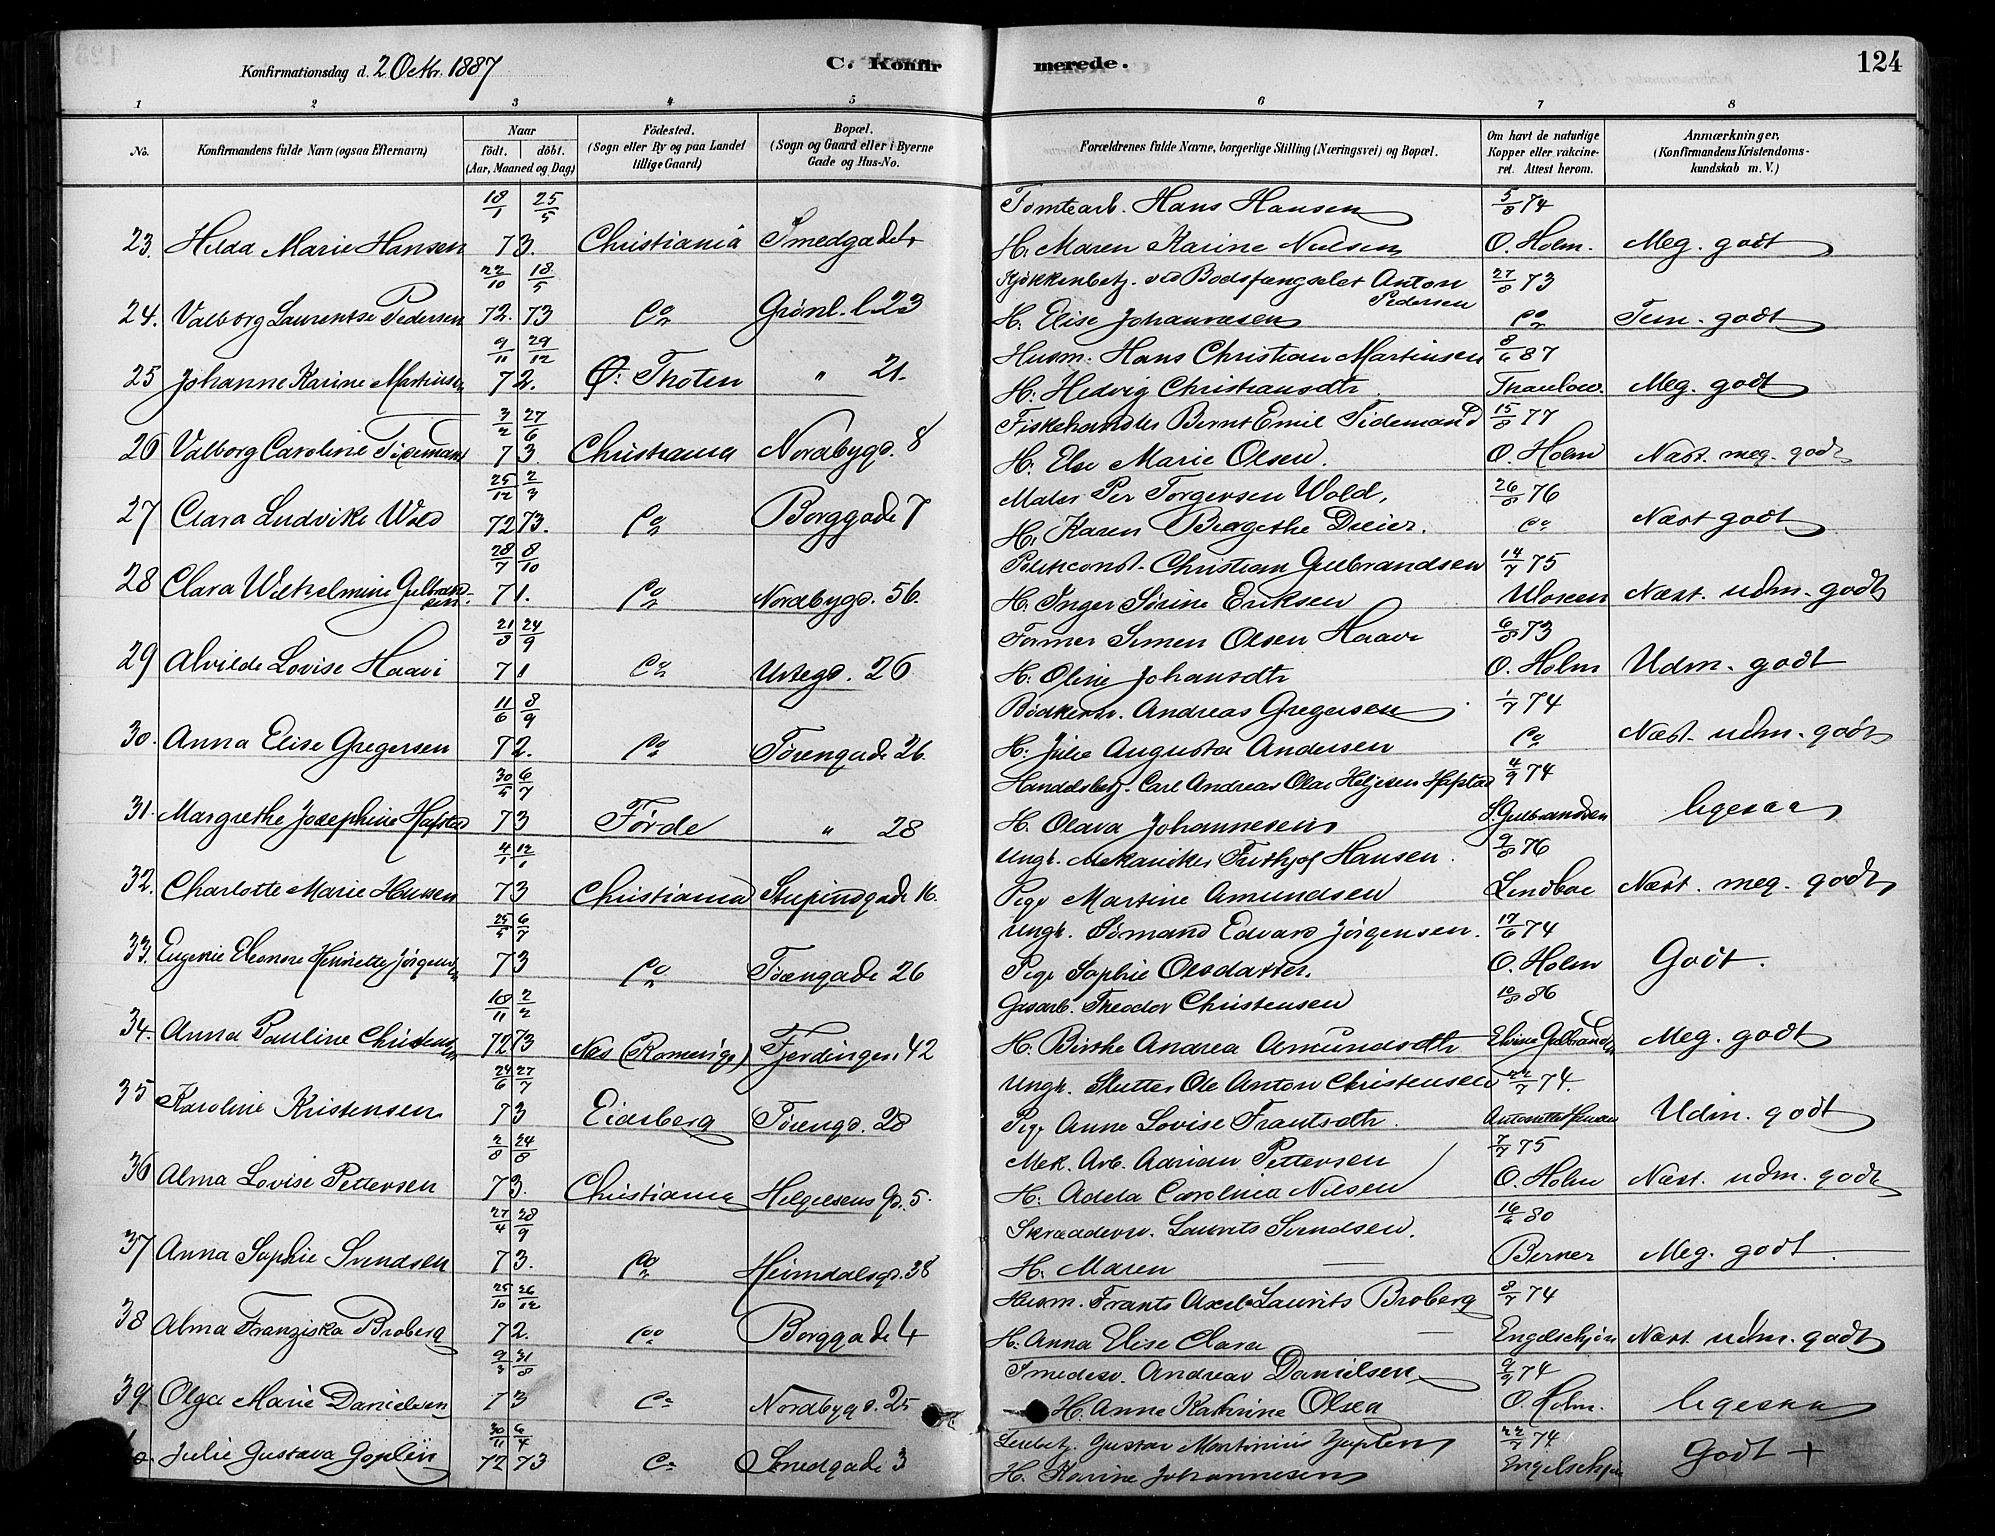 Konfirmationsdag d. 2 Octbr. 1887 C. Konfirmerede. 124
1 2 3 4 5 6 7 8
No. Konfirmandens fulde Navn (ogsaa Efternavn) Naar födt. döbt. (Aar, Maaned og Dag) Födested. (Sogn eller By og paa Landet tillige Gaard) Bopæl. (Sogn og Gaard eller i Byerne Gade og Hus-No. Forældrenes fulde Navne, borgerlige Stilling (Næringsvei) og Bopæl. Om havt de naturlige Kopper eller vakcineret. Attest herom. Anmærkninger. (Konfirmandens Kristendomskundskab m. V.)
18/1 25/5 Tomtearb. Hans Hansen 5/8 74
23. Hilda Marie Hansen 73. Christiania Smedgade H. Maren Karine Nielsen O. Holm. Meg. godt
22/10 18/5 Kjøkkenbetj. ved Bodsfængselet Anton Pedersen 27/8 73
24. Valborg Laurentse Pedersen 72. 73 Do Grønl. l. 23 H. Elise Johannesen Do Tem. godt
9/11 29/12 Husm. Hans Christian Martinsen 8/6 87
25 Johanne Karine Martinsen 72. Ø: Thoten " 21. H: Hedvig Christiansdtr Thaulow. Meg. godt
3/2 27/6 Fiskehandler Bernt Emil Tidemand 15/8 77
26 Valborg Caroline Tidemand 73 Christiania Nordbygd. 8 H. Else Marie Olsen. O. Holm Næst. meg. godt
25/12 2/3 Maler Per Torgersen Wold, 26/8 76
27 Clara Ludvike Wold 72 73. Do Borggade 7 H. Karen Bergethe Dreier. Do Næst godt
28/7 8/10 Politiconst. Christian Gulbrandsen 14/7 75
28 Clara Wilhelmine Gulbrandsen. 71. Do Nordbygd. 56. H. Inger Sørine Eriksen Næst. udm. godt
21/8 24/9 Former Simen Olsen Haave 6/8 73
29 Alvilde Lovise Haavi 71 Do Urtegd. 26 H: Oline Johansdtr O. Holm Udm. godt
11/6 8/9 Bødkersv. Andreas Gregersen 1/7 74
30. Anna Elise Gregersen 72. Do Tøiengade 26. H. Julie Augusta Andersen Do Næst. udm. godt
30/5 6/7 Handelsbetj. Carl Andreas Olai Heljesen Hafstad 4/9 74
31. Margrethe Josephine Hafstad 73 Førde " 28 H. Olava Johannesen S. Gulbrandsen ligesaa
4/1 12/1 Ungk. Mekaniker Frithjof Hansen. 9/8 76
32. Charlotte Marie Hansen 73 Christiania Stupinsgade 16. Pige Martine Amundsen Lindboe Næst. meg. godt
25/5 6/7 Ungk. Sømand Edvard Jørgensen. 17/6 74
33. Eugenie Eleonore Henriette Jørgensen 73 Do Tøiengade 26 Pige Sophie Olsdatter. O. Holm Godt.
18/11 2/2 Gasarb. Theodor Christensen 10/8 86
34. Anna Pauline Christensen 72 73 Nes (Romerige) Fjerdingen 42 H. Birthe Andrea Amundsdtr Meg. godt
24/6 27/7 Ungk. Slutter Ole Anton Christensen 22/7 74
35 Karoline Kristensen 73 Eidsberg Tøiengd. 28 Pige Anne Lovise Frantsdtr. Antonette Hansen Udm. godt
2/8 24/8 Mek. Arb. Adrian Pettersen 7/7 75
36 Alma Lovise Pettersen 73. Christiania Helgesens Gd. 5. H. Adela Carolina Nilsen O. Holm Næst. udm. godt
27/4 28/9 Skræddersv. Laurits Svendsen. 16/6 80
37 Anna Sophie Svendsen 73. Do Heimdalsgd. 38 H. Maren — Berner Meg. godt.
25/10 26/12 Husm. Frants Axel Laurits Broberg 8/7 74
38 Alma Franziska Broberg 72. Do Borggade 4 H. Anna Elise Clara — Engelschjøn Næst udm. godt
9/3 31/8 Smedesv. Andreas Danielsen 9/9 74
39. Olga Marie Danielsen 73 Do Nordbygd. 25 H. Anne Kathrine Olsen O. Holm. ligesaa
30/11 6/4 Gustav Martinius Goplen 22/7 74
Julie Gustava Goplen 72 73 Do Smedgade 3 H. Karine Johannesen Engelschjøn Godt +